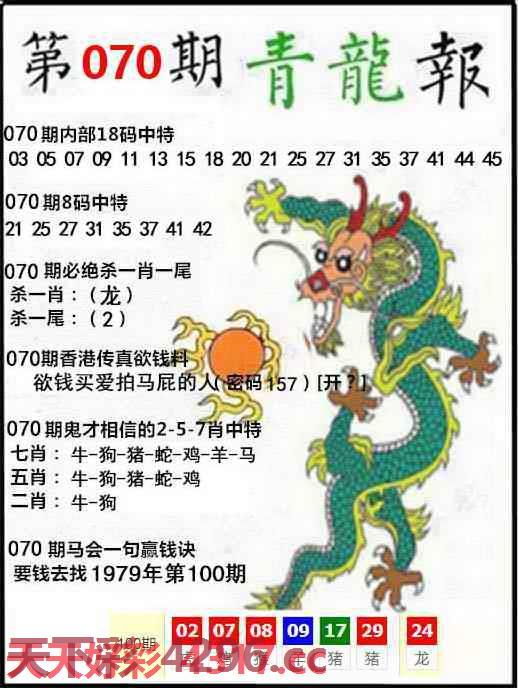 第070期青龍報
070期内部18码中特
03 05 07 09 11 13 15 18 20 21 25 27 31 35 37 41 44 45
070期8码中特
21 25 27 31 35 37 41 42
070期必绝杀一肖一尾
杀一肖：（龙）
杀一尾：（2）
070期香港传真欲钱料
欲钱买爱拍马屁的人(密码157)[开?]
070期鬼才相信的2-5-7肖中特
七肖：牛-狗-猪-蛇-鸡-羊-马
五肖：牛-狗-猪-蛇-鸡
二肖：牛-狗
070期马会一句赢钱诀
要钱去找1979年第100期
100期 02 07 08 09 17 29 24
猪 猪 龙
天天好彩42917.cc